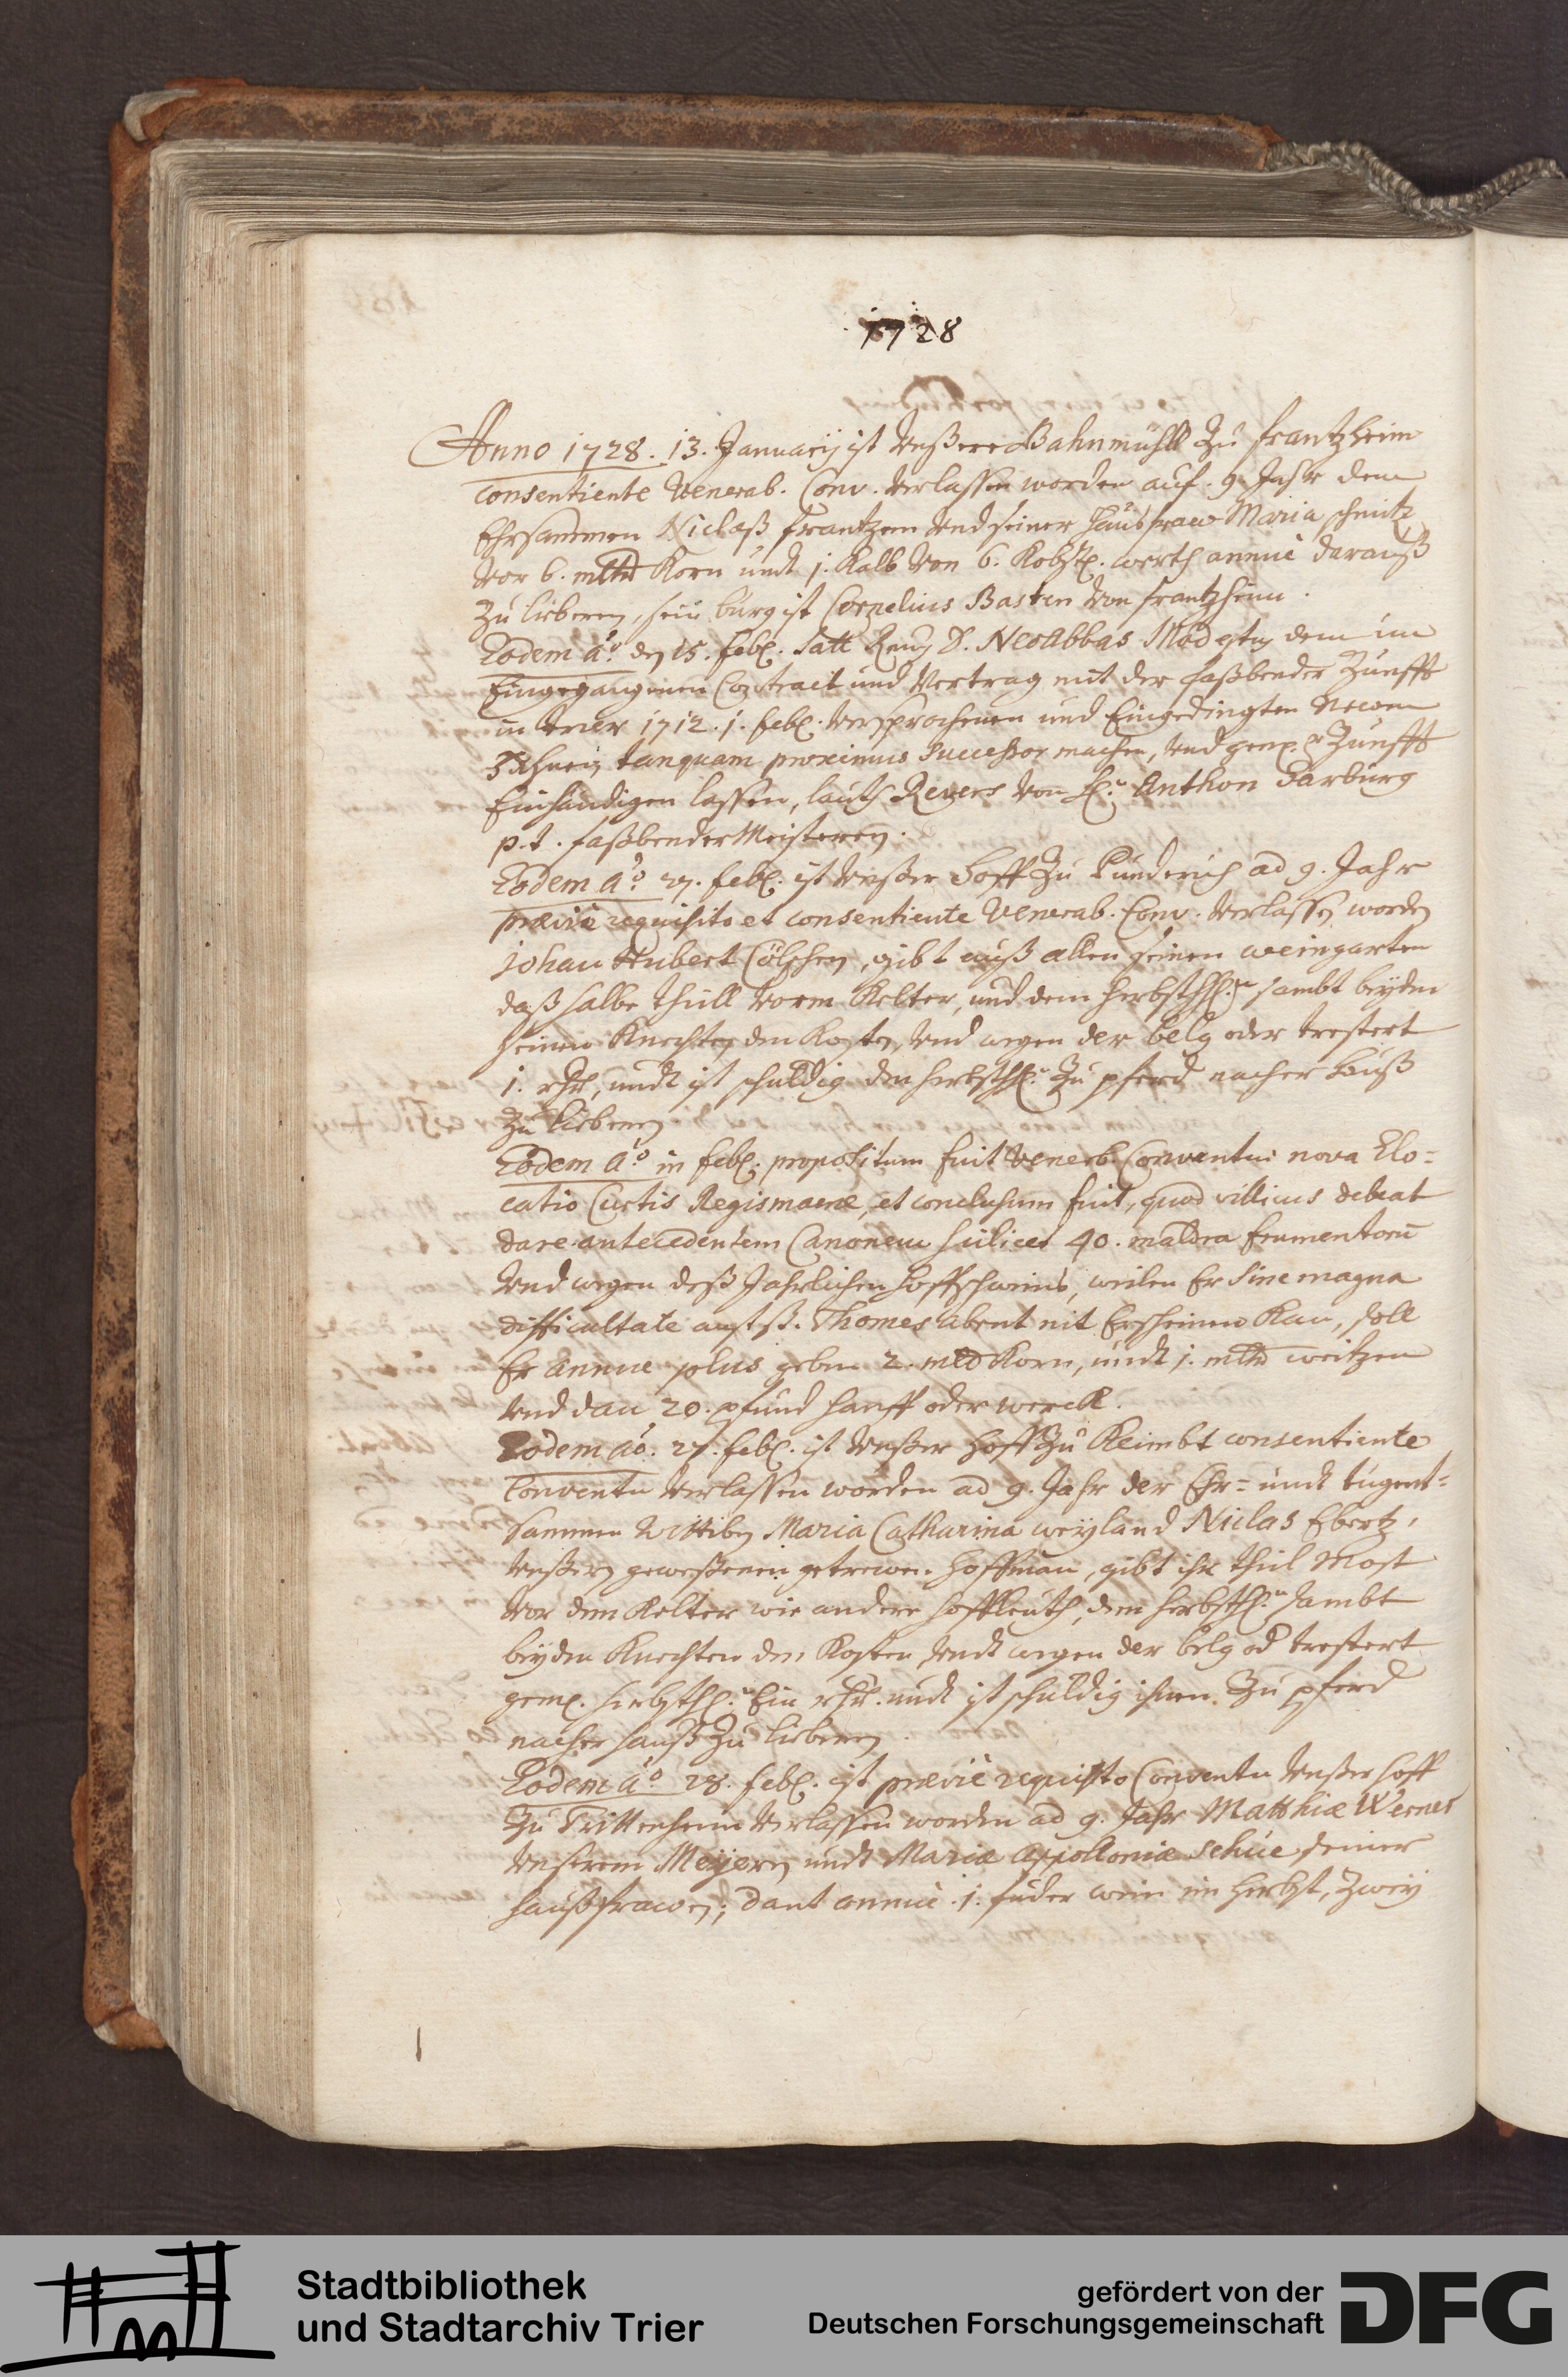 1728
Anno 1728. 13. Januarij ist unßere Bahnmühll zu Frantzheim
consentiente Venerab. Conv. verlassen worden auf 9. Jahr dem
Ehrsammen Niclaß Frantzen und seiner Haußfraw Maria Schmitz
vor 6. mltr Korn undt 1. Kalb von 6. Kobst. werth annuè darauß
zu lieberen, sein burg ist Cornelius Basten von Frantzheim.
Eodem aō. den 15. feb. hatt D. NeoAbbas dem im
Eingegangenen Contract und Vertrag mit der faßbender Zunfft
in trier 1712. 1. feb. versprochenen und Eingedingten newen
tanquam proximus Successor machen, und gem. Zunfft
Einhändigen lassen, lauth Revers von H. Anthon Marburg
p.t. faßbenderMeisteren.
Eodem aō. 27. feb. ist unßer Hoff zu Pünderich ad 9. Jahr
prævie requisito et consentiente Venerab. Conv. verlassen worden
Johan Hubert Cölschen, gibt auß allen seinen weingarten
daß halbe theill vorm Kelter, und dem herbsth. sambt beyden
seinen Knechten den Kosten, und wegen der belg oder trestert
1. rthr, undt ist schuldig den herbsth. zu pferd nacher Hauß
zu lieberen
Eodem aō. in feb. propositum fuit Venerb. Conventui nova Elo=
catio Curtis Regismacræ, et conclusum fuit, quod villicus debeat
dare antecedentem Canonem scilicet 40. maldra frumentorū
und wegen deß Jahrlichen hoffschweins, weilen Er sine magna
difficultate auf st. Thomes abent nit Erscheinen kan, soll
Er annue plus geben 2. mltr Korn, undt 1. mltr weitzen
und dan 20. pfund hanff oder werck.
Eodem aō. 27. feb. ist unßer Hoff zu Kleimbt consentiente
Conventu verlassen worden ad 9. Jahr der Ehr= undt tugent=
sammen Wittiben Maria Catharina weyland Niclas Ebertz,
unßeren geweßenen getrewen Hoffman, gibt ihr theil Most
vor dem Kelter wie andere hoffleuth, dem herbsth. sambt
beyden Knechten den Kosten, undt wegen der belg od trestert
gem. herbsth. Ein rthr. undt ist schuldig ihnen zu pferd
nacher hauß zu lieberen.
Eodem aō. 28. feb. ist prævie requisito Conventu unßer hoff
zu Trittenheim verlassen worden ad 9. Jahr Matthiæ Werner
unserem Meyeren undt Mariæ Appolloniæ Schüe seiner
haußfrawen; dant annue 1. fuder wein im herbst, zwey
Stadtbibliothek
und Stadtarchiv Trier
gefördert von der
Deutschen Forschungsgemeinschaft
DFG